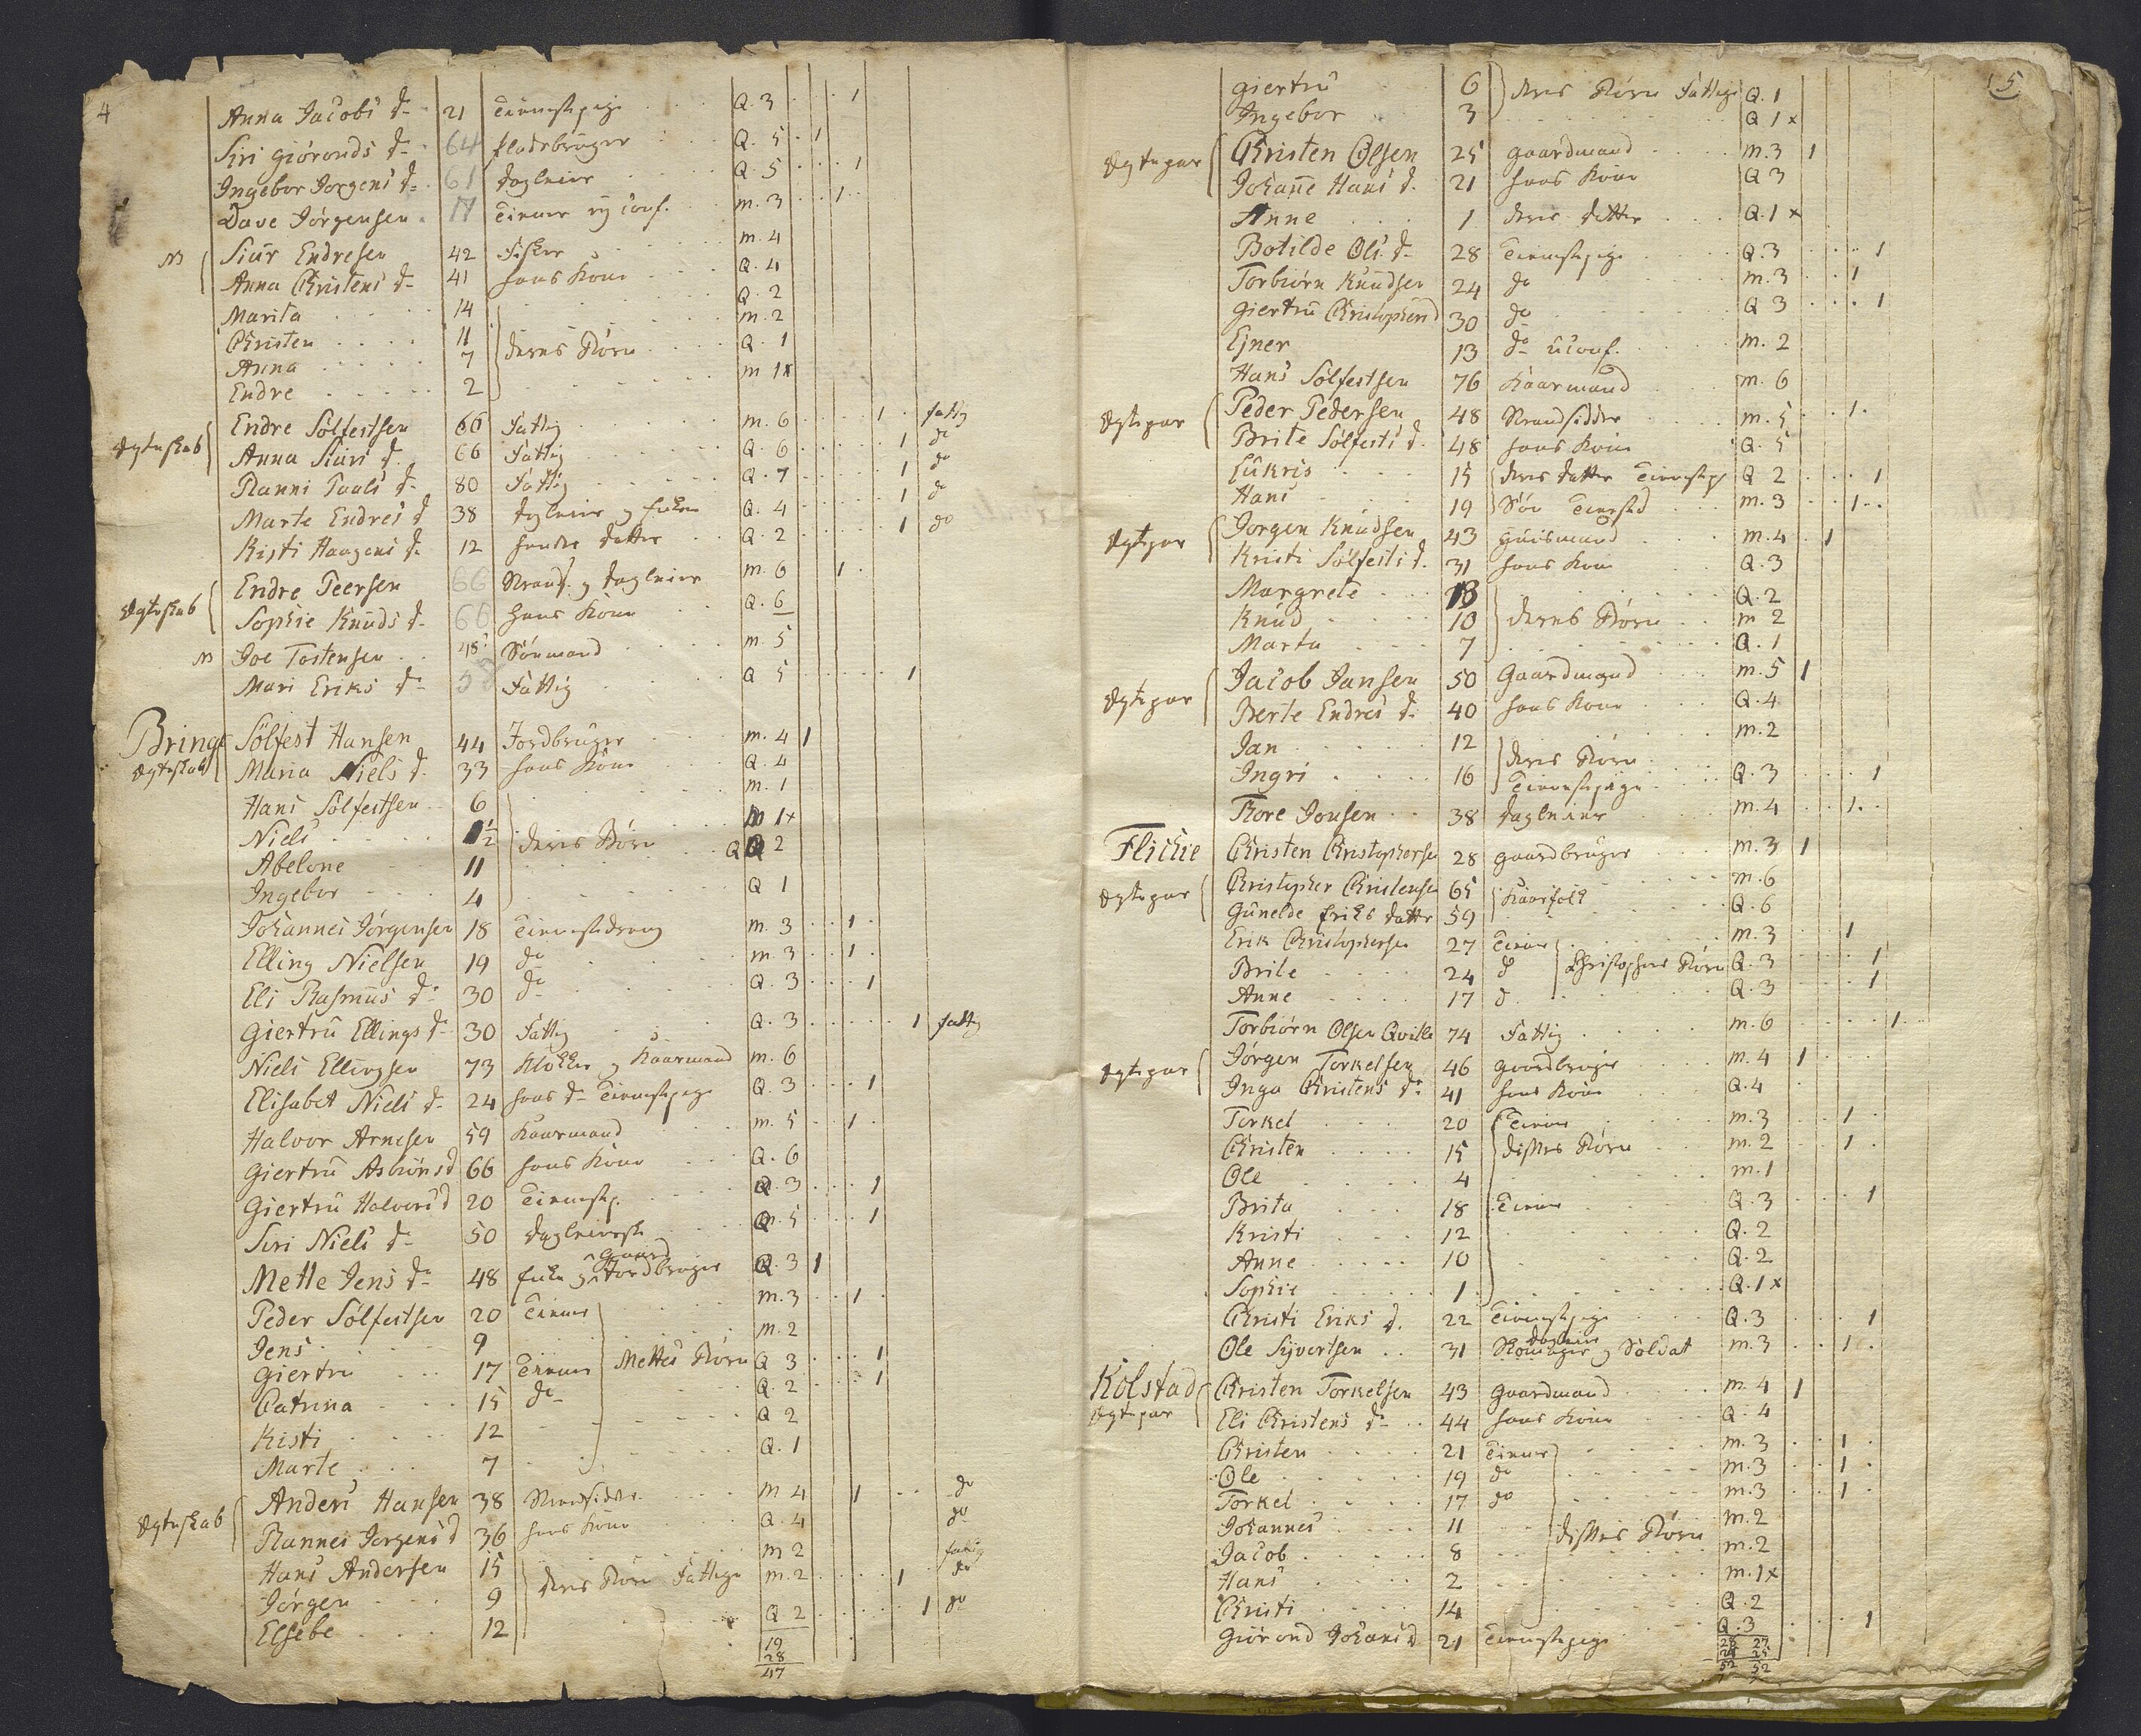 4
Anna Jacobs d. 21 Tienestpige Q. 3 1
Siri Giöronds d. 64 Pladsbruger Q. 5 1
Ingebor Jorgens d. 61 dagleier Q. 5 1
Dave Jörgensen 17 Tiener uconf. m. 3 1
Siur Endresen 42 Fisker m. 4
Anna Christens d. 41 hans Kone Q. 4
Marita 14 Q. 2
Christen 11 m. 2
Anna 7 deres Börn Q. 1
Endre 2 m 1x
Ægteskab Endre Sölfestsen 66 Fattig m. 6 1 fattig
Anna Siurs d. 66 Fattig Q. 6 1 do
Ranni Paals d. 80 Fattig Q. 7 1 do
Marte Endres d 38 dagleier og Enke Q. 4 1 do
Kisti Haagens d. 12 hendes datter Q. 2 1 do
Endre Peersen 66 Strands. og dagleier m. 6 1
Ægteskab Sophie Knuds d. 66 hans Kone Q. 6
Joe Tostensen 48 m. 5
Mari Eriks d. Fattig Q 5 1
Bringe Sölfest Hansen 44 Jordbruger m. 4 1
Ægteskab Maria Niels d. 33 hans Kone Q. 4
Hans Sölfestsen 6 m. 1
Niels 1½ deres Börn m 1x
Abelone 11 Q 2
Ingebor 4 Q 1
Johannes Jörgensen 18 Tienestedreng m. 3 1
Elling Nielsen 19 do m. 3 1
Eli Rasmus d. 30 do Q. 3 1
Giertru Ellings d. 30 Fattig Q. 3 1 fattig
Niels Ellingsen 73 Klokker og Kaarmand m. 6
Elisabet Niels d. 24 hans d. Tienestpige Q. 3 1
Halvor Arnesen 59 Kaarmand m. 5 1
Giertru Asbiöns d 66 hans Kone Q. 6
Giertru Halvors d 20 Tienestp. Q. 3 1
Siri Niels d. 50 dagleierske Q. 5 1
Gaard
Mette Jens d. 48 Enke og Jordbruger Q. 3 1
Peder Sölfestsen 20 Tiener m. 3 1
Jens 9 m. 2
Giertru 17 Tiener Mettes Börn Q 3 1
Catrina 15 do Q. 2 1
Kisti 12 Q 2
Marte 7 Q. 1
Anders Hansen 38 Strandsidder m 4 1 do
Ægteskab Rannei Jorgens d 36 hans Kone Q. 4 do
Hans Andersen 15 m 2 fattig
Jörgen 9 deres Börn Fattige m. 2 1 do
Elsebe 12 Q 2 1 do
19
28
47
5
Giertru 6 deres Börn Fattige Q. 1
Ingebor 3 Q 1x
Ægtepar Christen Olsen 25 Gaardmand m. 3 1
Johanne Hans d. 21 hans Kone Q 3
Anne 1 deres datter Q. 1x
Botilde Ols d. 28 Tienestpige Q. 3 1
Torbiörn Knudsen 24 do m. 3 1
Giertru Christophers d 30 do Q 3 1
Ejner 13 do uconf. m. 2
Hans Sölfestsen 76 Kaarmand m. 6
Ægtepar Peder Pedersen 48 Strandsidder m. 5 1
Brite Sölfests d. 48 hans Kone Q. 5
Lukris 15 deres datter Tienestp Q 2 1
Hans 19 Sön m. 3 1
Ægtepar Jorgen Knudsen 43 Huusmand m. 4 1
Kristi Sölfests d. 31 hans Kone Q. 3
Margrete 13 Q. 2
Knud 10 deres Börn m 2
Marta 7 Q. 1
Ægtepar Jacob Jansen 50 Gaardmand m. 5 1
Berte Endres d. 40 hans Kone Q. 4
Jan 12 deres Börn m. 2
Ingri 16 Tienestpige Q. 3 1
Tore Jonsen 38 dagleier m. 4 1
Flichie Christen Christophersen 28 Gaardbruger m. 3 1
Ægtepar Christopher Christensen 65 Kaarfolk m. 6
Gunelde Eriks datter 59 Q. 6
Erik Christophersen 27 Tiener m. 3 1
Brite 24 do Christophers Börn Q. 3 1
Anne 17 d Q. 3 1
Torbiörn Olsen Qville 74 Fattig m. 6 1
Ægtepar Jörgen Torkelsen 46 Gaardbruger m. 4 1
Inga Christens d. 41 hans Kone Q. 4
Torkel 20 Tiener m. 3 1
Christen 15 disses Börn m. 2 1
Ole 4 m. 1
Brita 18 Tiener Q. 3 1
Kristi 12 Q. 2
Anne 10 Q. 2
Sophie 1 Q. 1x
Christi Eriks d. 22 Tienestpige Q. 3 1
dagleier
Ole Sjvertsen 31 Skomager og Soldat m. 3 1
Kolstad Christen Torkelsen 43 Gaardmand m. 4 1
Ægtepar Eli Christens d. 44 hans Kone Q. 4
Christen 21 Tiener m. 3 1
Ole 19 do m. 3 1
Torkel 17 do m. 3 1
Johannes 11 disses Börn m. 2
Jacob 8 m. 2
Hans 2 m. 1x
Christi 14 Q. 2
Giörond Johans d 21 Tienestpige Q. 3 1
28 27
24 25
52 52